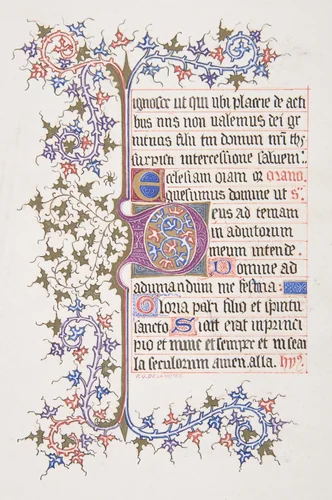 ignosce ut qui tibi placere de acti
bus nris non valemus dei ge
nitricis filii tui domini nri ihu
xpisti intercessione salvem':
Ecclesiam qiam or oratio
quesumus domine ut s'
Deus ad temam
in adiutorium
meum intende.
Domine ad
adiuvandum me festina:
Gloria patri filio et spiritu
sancto Sicut erat inprinci
pio et nunc et semper et in secu
la seculorum amen. alla. hys